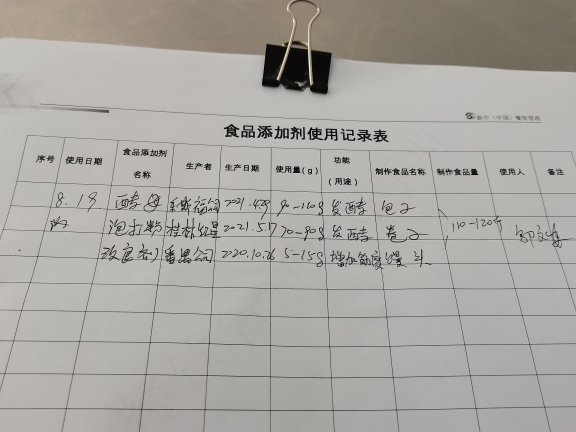 新中(中国)餐饮管理
食品添加剂使用记录表
序号 使用日期 食品添加剂名称 生产者 生产日期 使用量(g) 功能(用途) 制作食品名称 制作食品量 使用人 备注
8.19 酵母 2021.4.29 90-110g 发酵 包子
泡打粉 桂林红星 2021.5.17 70-90g 发酵 卷子 110-120个
改良剂 番禺公司 2020.10.26 5-15g 增加筋度 馒头